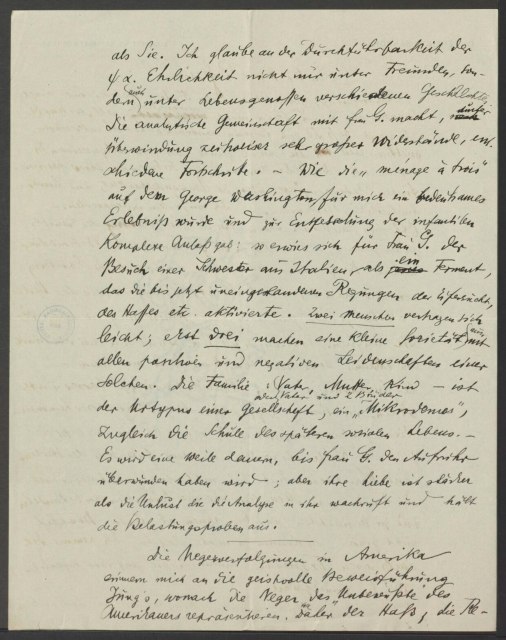 als Sie. Ich glaube an der Durchführbarkeit der
ψα. Ehrlichkeit nicht nur unter Freunden, son-
dern auch unter Lebensgenossen verschiedenen Geschlechts.
Die analytische Gemeinschaft mit Frau G. macht, unter
Überwindung zeitweise sehr großer Widerstände, ent-
schiedene Fortschritte. – Wie die „ménage à trois"
auf dem George Washington für mich ein bedeutsames
Erlebniß wurde und zur Entfesselung der infantilen
Komplexe Anlaß gab: so erwies sich für Frau G. der
Besuch einer Schwester aus Italien, als ein Ferment,
das die bis jetzt uneingestandenen Regungen der Eifersucht,
des Hasses etc. aktivierte. Zwei Menschen vertragen sich
leicht; erst drei machen eine kleine Societät aus mit
allen positiven und negativen Leidenschaften einer
solchen. Die Familie: Vater, Mutter, Kind – ist
oder Vater und 2 Brüder
der Urtypus einer Gesellschaft, ein „Mikrodemos",
zugleich die Schule des späteren sozialen Lebens. –
Es wird eine Weile dauern, bis Frau G. den Aufruhr
überwunden haben wird; aber ihre Liebe ist stärker
als die Unlust die die Analyse in ihr wachruft und hält
die Belastungsproben aus.
Die Negerverfolgungen in Amerika
erinnern mich an die geistvolle Beweisführung
Jungs, wonach die Neger das Unbewußte des
Amerikaners repräsentieren. Daher der Haß, die Re-